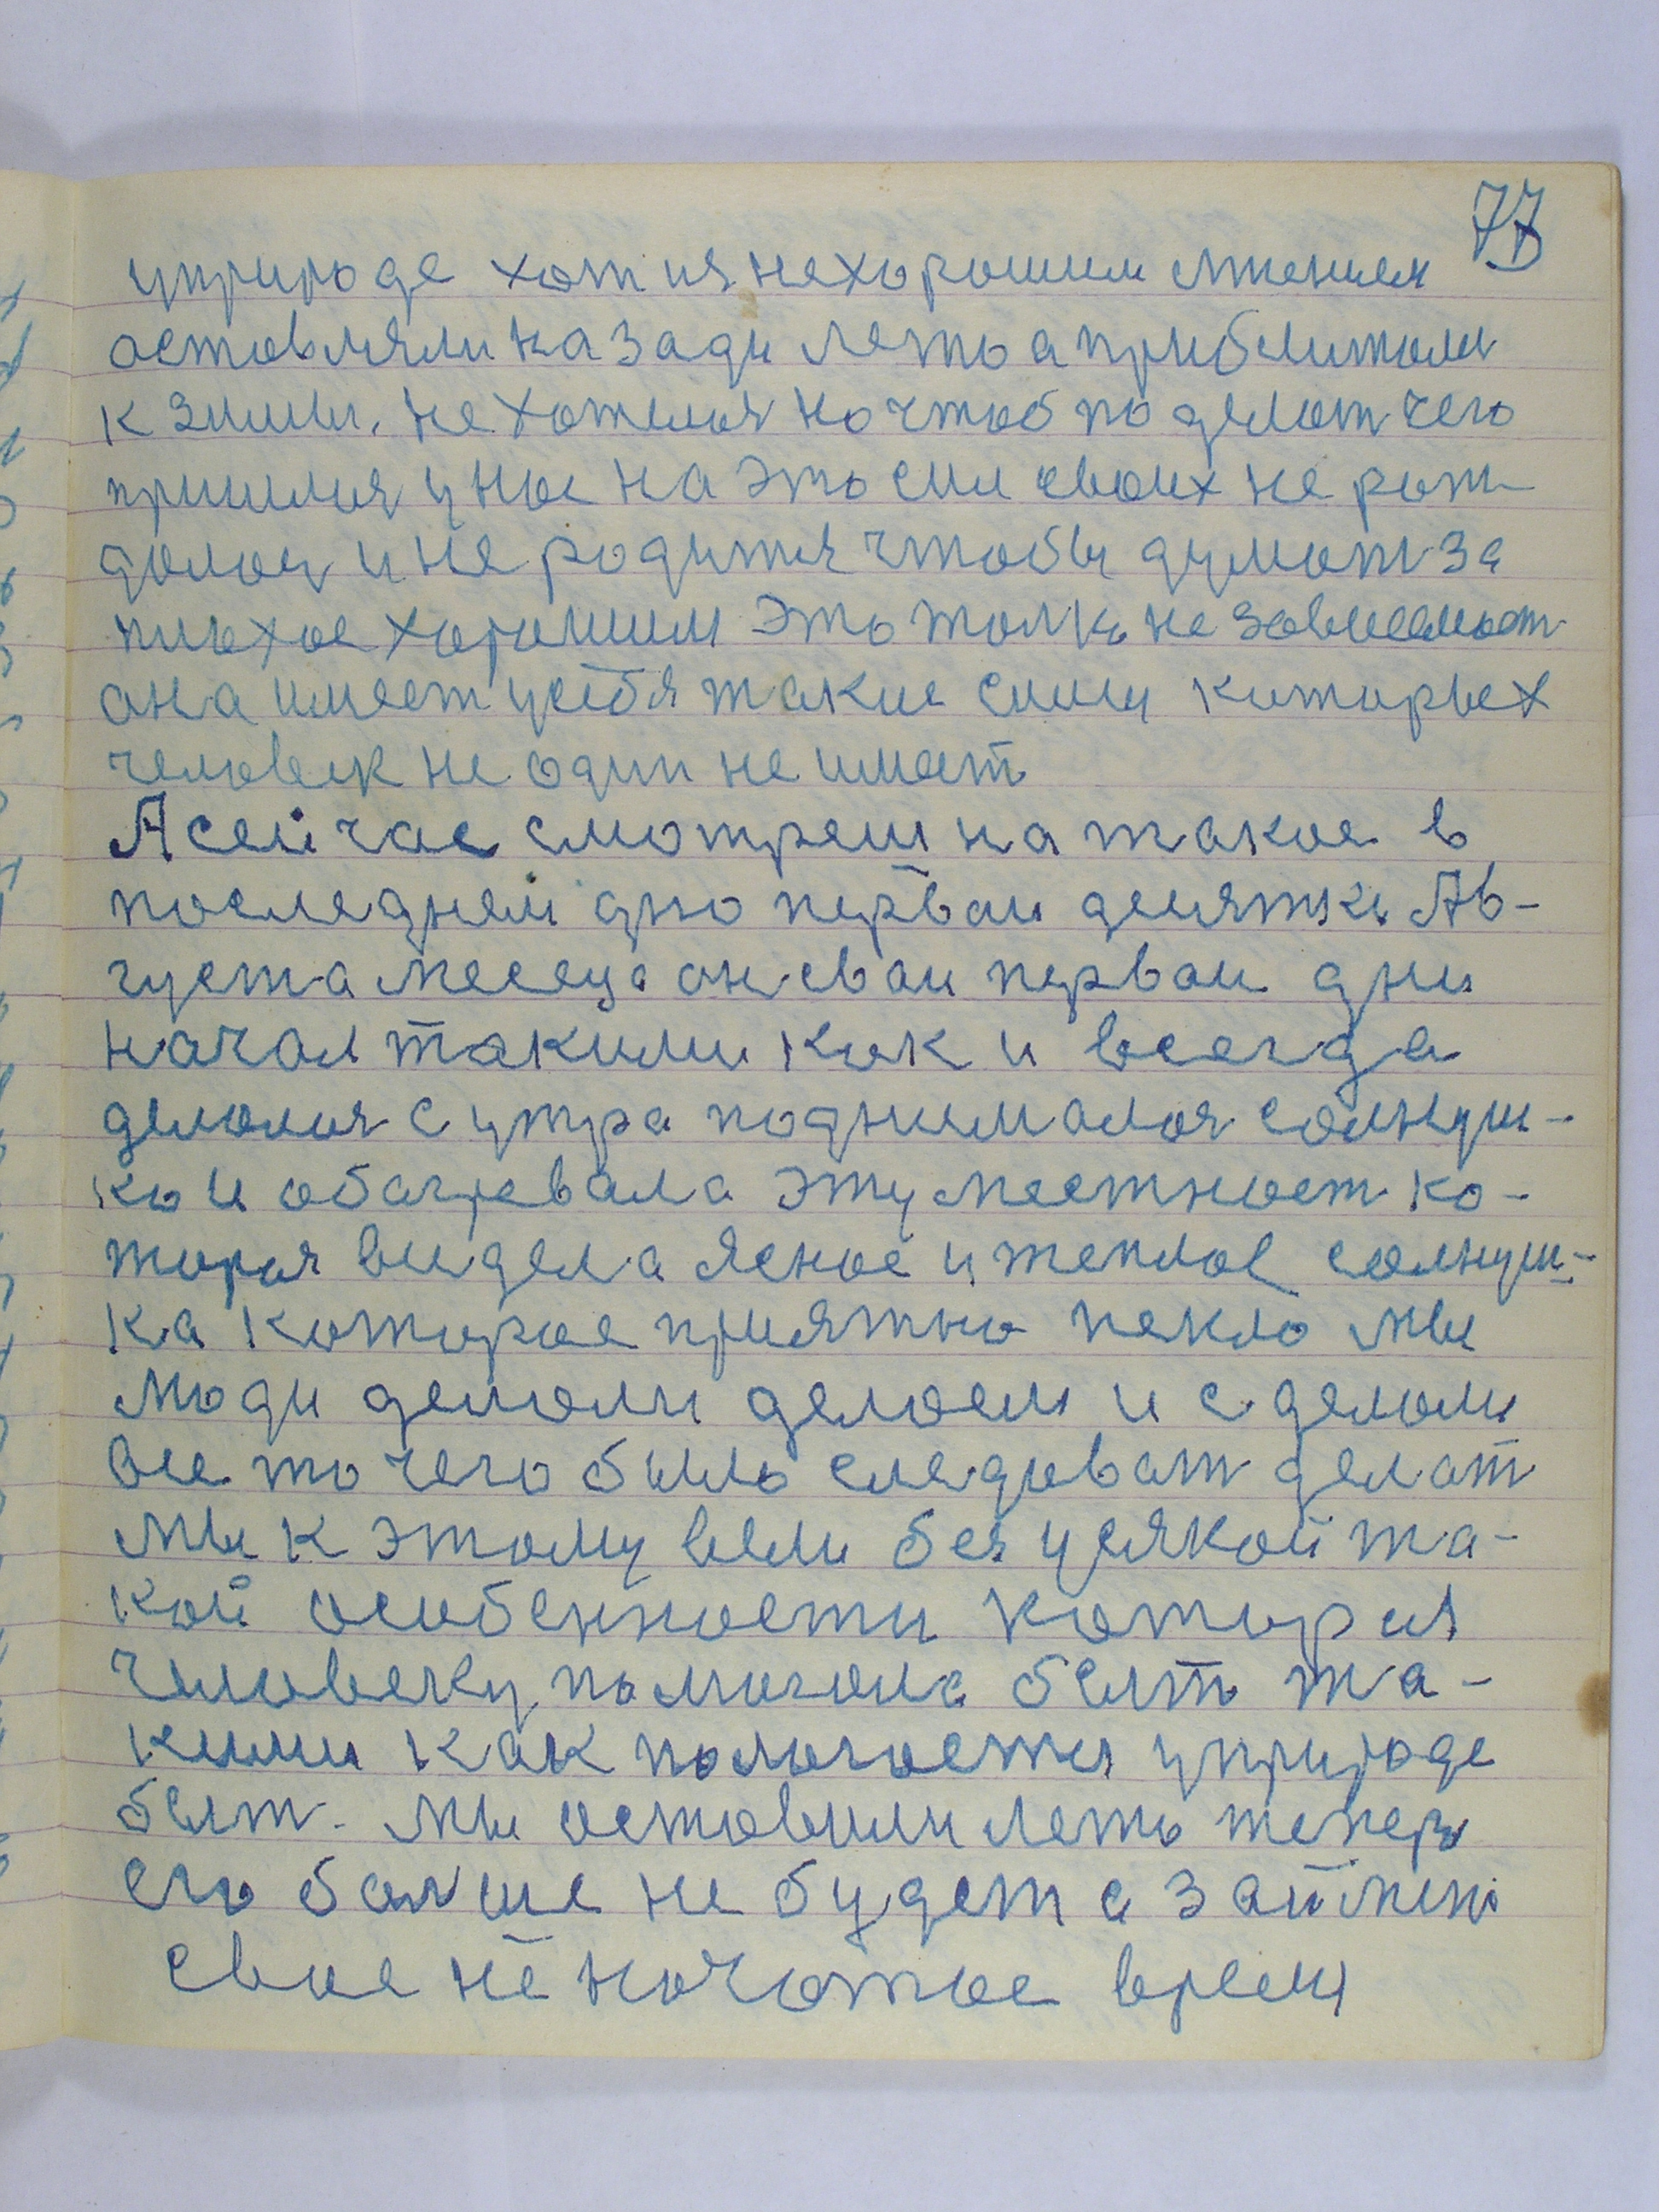 77
уприроде хотия нехорошим мнением
оставляли назади лето а приближали
к зимы. не хотелоя но чтоб по делат чего
пришлоя у нас на это сил своих не рож-
далоя и не родитя чтобы думат за
плохое хорошим это толкь не зависемост
она имеет усебя такие силы которых
человек не один не имеет
А сейчас смотреш на такое в
последнем дню первои десятки Ав-
густа месеца он свои первои дни
начал такими как и всегда
делалоя с утра поднималоя солнуш-
ко и обагревала эту местност ко-
торая видела ясное и теплое солнуш-
ка которое приятно пекло мы
люди делали делаем и сделали
все то чего было следоват делат
мы к этому вели без усякой та-
кой особенности которая
человеку помогала быт та-
кими как пологаетя уприроде
быт. мы оставили лето теперь
его болше не будет а займет
свое не начатое время